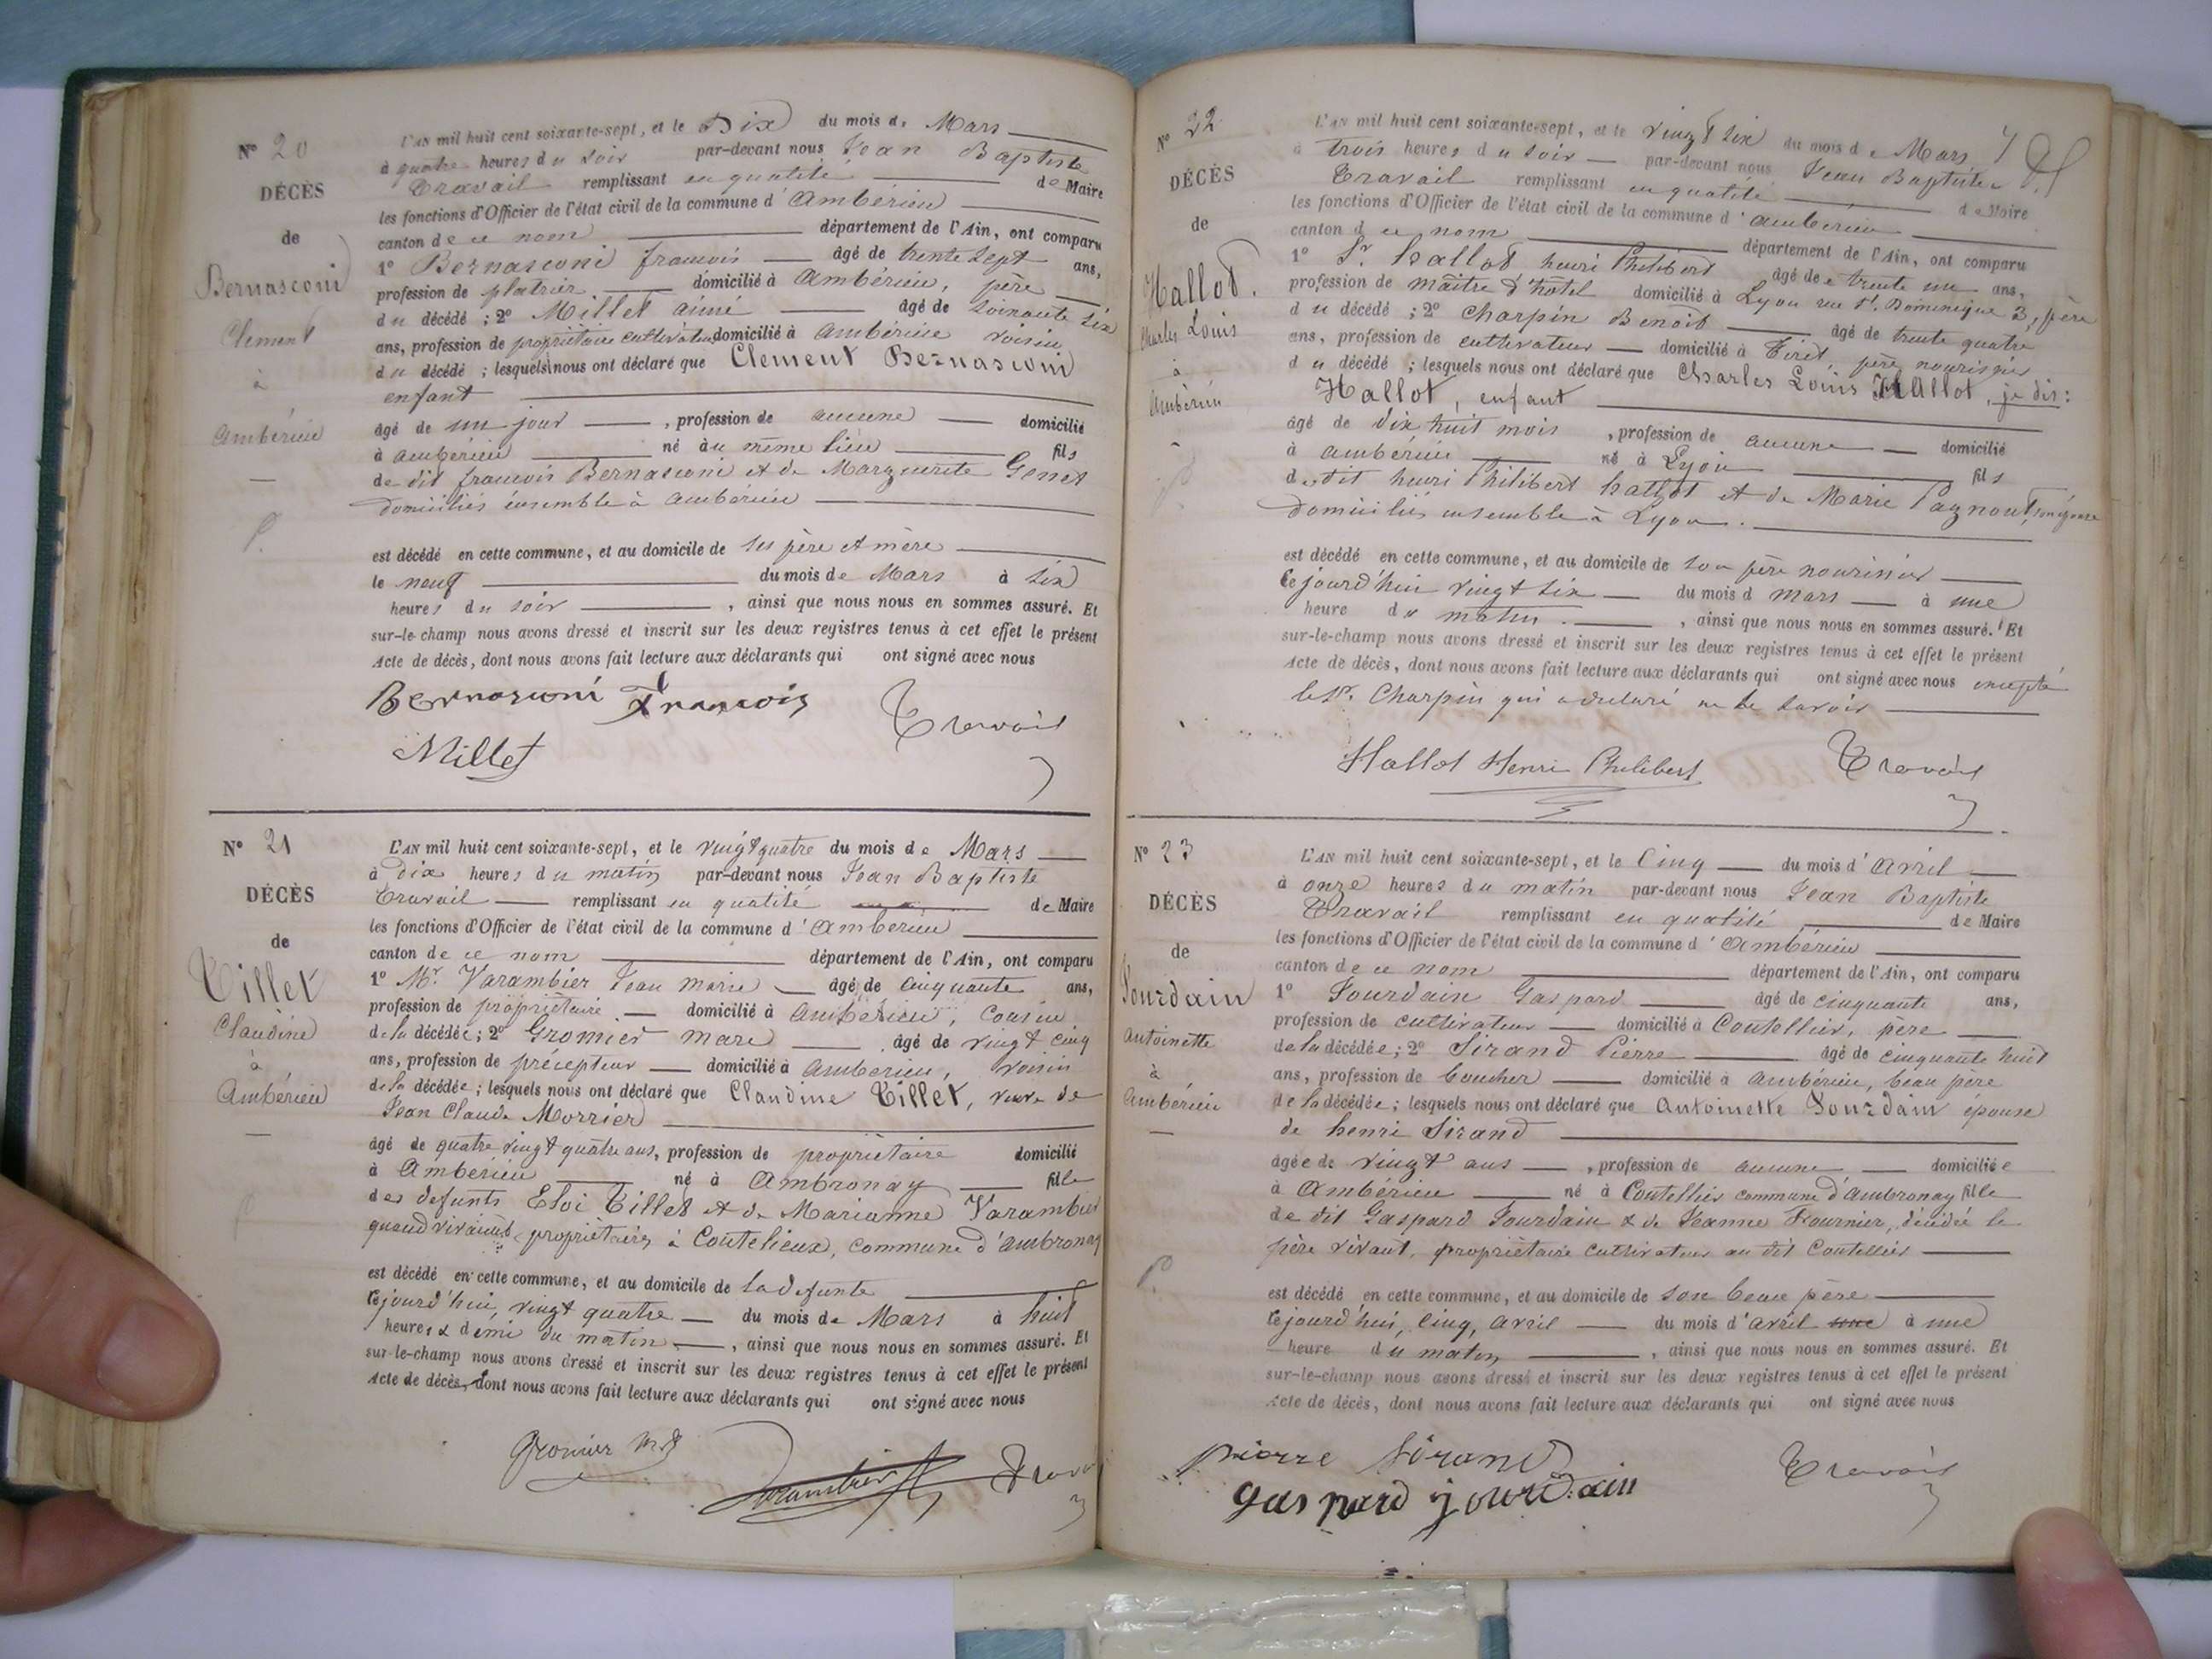 N° 20
DÉCÈS
de
Bernasconi
Clement
à
Ambérieu
L'AN mil huit cent soixante-sept, et le Dix du mois de Mars
à quatre heures du soir par-devant nous Jean Baptiste
Travail remplissant en qualité de Maire
les fonctions d'Officier de l'état civil de la commune d'Ambérieu
canton de ce nom département de l'Ain, ont comparu
1° Bernasconi françois âgé de trente sept ans,
profession de platrier domicilié à Ambérieu, père
du décédé ; 2° Millet aimé âgé de soixante six
ans, profession de propriétaire cultivateur domicilié à Ambérieu voisin
du décédé ; lesquels nous ont déclaré que Clement Bernasconi
enfant
âgé de un jour, profession de aucune domicilié
à ambérieu né au même lieu fils
de dit françois Bernasconi et de Marguerite Genet
domiciliés ensemble à Ambérieu
est décédé en cette commune, et au domicile de ses père et mère
le neuf du mois de Mars à six
heures du soir, ainsi que nous nous en sommes assuré. Et
sur-le-champ nous avons dressé et inscrit sur les deux registres tenus à cet effet le présent
Acte de décès, dont nous avons fait lecture aux déclarants qui ont signé avec nous
Bernasconi François
Travail
Millet
N° 21
DÉCÈS
de
Tillet
Claudine
à
Ambérieu
L'AN mil huit cent soixante-sept, et le vingt quatre du mois de Mars
à Dix heures du matin par-devant nous Jean Baptiste
Travail remplissant en qualité de Maire
les fonctions d'Officier de l'état civil de la commune d'Ambérieu
canton de ce nom département de l'Ain, ont comparu
1° Mr. Varambier Jean marie âgé de cinquante ans,
profession de propriétaire domicilié à Ambérieu, cousin
de la décédée ; 2° Gromier marc âgé de vingt cinq
ans, profession de précepteur domicilié à Ambérieu, voisin
de la décédée ; lesquels nous ont déclaré que Claudine Tillet, veuve de
Jean Claude Morrier
âgé de quatre vingt quatre ans, profession de propriétaire domicilié
à Ambérieu né à Ambronay fille
des defunts Eloi Tillet et de Marianne Varambier
quand vivaient propriétaires à Coutelieux, commune d'ambronay
est décédé en cette commune, et au domicile de la defunte
cejourd'hui, vingt quatre du mois de Mars à huit
heures & demi du matin, ainsi que nous nous en sommes assuré. Et
sur-le-champ nous avons dressé et inscrit sur les deux registres tenus à cet effet le présent
Acte de décès, dont nous avons fait lecture aux déclarants qui ont signé avec nous
Gromier
Varambier
Travail
N° 22
DÉCÈS
de
Hallot.
Charles Louis
à
Ambérieu
L'AN mil huit cent soixante-sept, et le vingt six du mois de Mars
à trois heures du soir par-devant nous Jean Baptiste
Travail remplissant en qualité de Maire
les fonctions d'Officier de l'état civil de la commune d'ambérieu
canton de ce nom département de l'Ain, ont comparu
1° Sr. hallot henri Philibert âgé de trente un ans,
profession de maître d'hôtel domicilié à Lyon rue St. Dominique 3, père
du décédé ; 2° Charpin Benoit âgé de trente quatre
ans, profession de cultivateur domicilié à Tiret, père nourisier
du décédé ; lesquels nous ont déclaré que Charles Louis Hallot, je dis :
Hallot, enfant
âgé de dix huit mois, profession de aucune domicilié
à ambérieu né à Lyon fils
de dit henri Philibert hallot et de Marie Pagnout, son épouse
domiciliés ensemble à Lyon.
est décédé en cette commune, et au domicile de son père nourisier
cejourd'hui vingt six du mois d mars à une
heure du matin., ainsi que nous nous en sommes assuré. Et
sur-le-champ nous avons dressé et inscrit sur les deux registres tenus à cet effet le présent
Acte de décès, dont nous avons fait lecture aux déclarants qui ont signé avec nous excepté
le Sr. Charpin qui a déclaré ne le savoir
Hallot Henri Philibert
Travail
N° 23
DÉCÈS
de
Jourdain
Antoinette
à
Ambérieu
L'AN mil huit cent soixante-sept, et le Cinq du mois d'avril
à onze heures du matin par-devant nous Jean Baptiste
Travail remplissant en qualité de Maire
les fonctions d'Officier de l'état civil de la commune d'Ambérieu
canton de ce nom département de l'Ain, ont comparu
1° Jourdain Gaspard âgé de cinquante ans,
profession de cultivateur domicilié à Coutellier, père
de la décédée ; 2° Sirand Pierre âgé de cinquante huit
ans, profession de boucher domicilié à Ambérieu, beau père
de la décédée ; lesquels nous ont déclaré que Antoinette Jourdain épouse
de henri Sirand
âgée de vingt ans, profession de aucune domiciliée
à Ambérieu né à Coutellier commune d'Ambronay fille
de dit Gaspard Jourdain & de Jeanne Fournier, décédée le
père vivant, propriétaire cultivateur au dit Coutellier
est décédé en cette commune, et au domicile de son beau père
cejourd'hui, cinq, avril du mois d'avril une à une
heure du matin, ainsi que nous nous en sommes assuré. Et
sur-le-champ nous avons dressé et inscrit sur les deux registres tenus à cet effet le présent
Acte de décès, dont nous avons fait lecture aux déclarants qui ont signé avec nous
pierre Sirand
Travail
gaspard jourdain